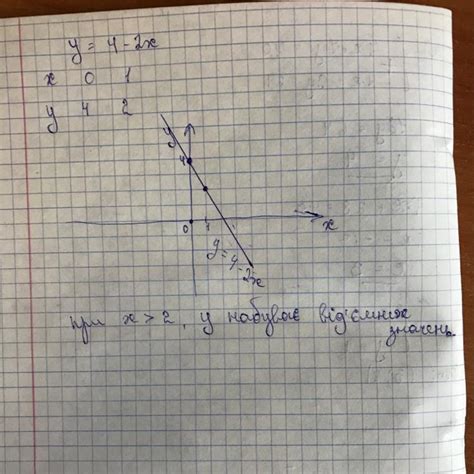 y = 4 - 2x
x 0 1
y 4 2
y
4
0 1 x
y = 4 - 2x
при x > 2, y набуває від'ємних
значень